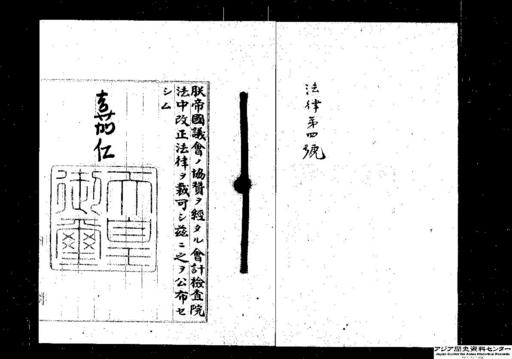 法律第四號
朕帝國議會ノ協贊ヲ經タル會計檢査院
法中改正法律ヲ裁可シ茲ニ之ヲ公布セ
シム
嘉仁
天皇
御璽
アジア歴史資料センター
Japan Center for Asian Historical Records